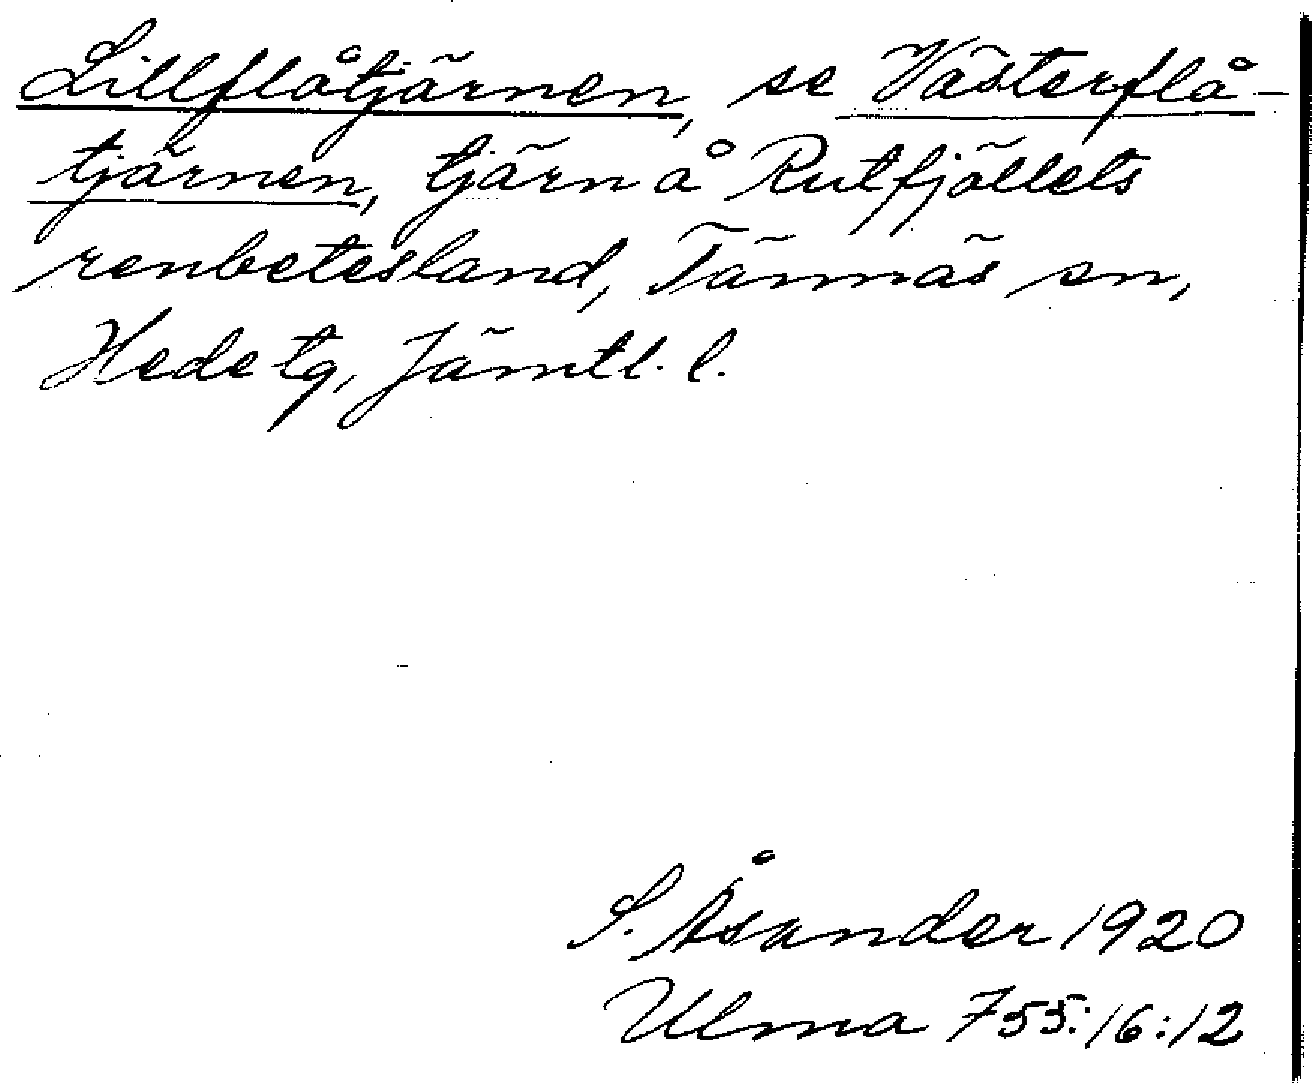 Lillflåtjärnen, se Västerflå-
tjärnen, tjärn å Rutfjällets
renbetesland, Tännäs sn,
Hede tg, Jämtl. l.
S. Åsander 1920
Ulma 755:16:12